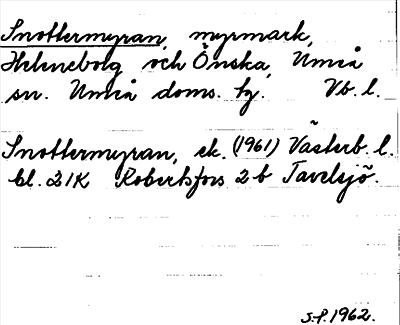 Snottermyran, myrmark,
Heleneborg och Önska, Umeå
sn. Umeå doms. tg. Vb. l.
Snottermyran, ek. (1961) Västerb. l.
bl. 21K Robertsfors 2b Tavelsjö.
S.P. 1962.